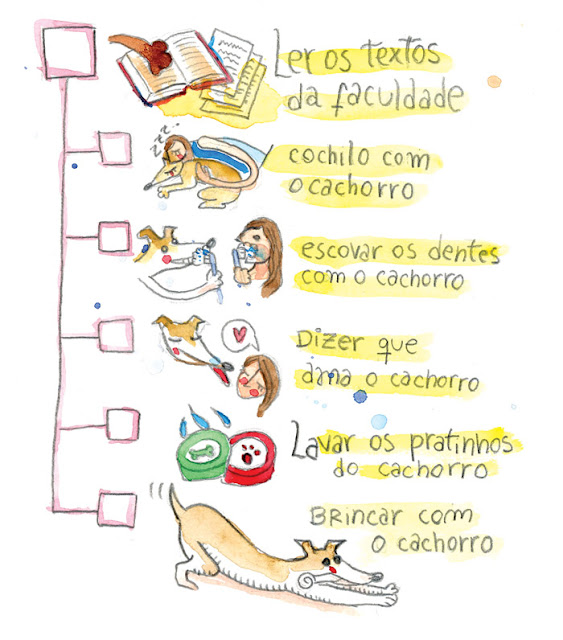 Ler os textos
da faculdade
zzz
cochilo com
o cachorro
escovar os dentes
com o cachorro
Dizer que
ama o cachorro
Lavar os pratinhos
do cachorro
Brincar com
o cachorro